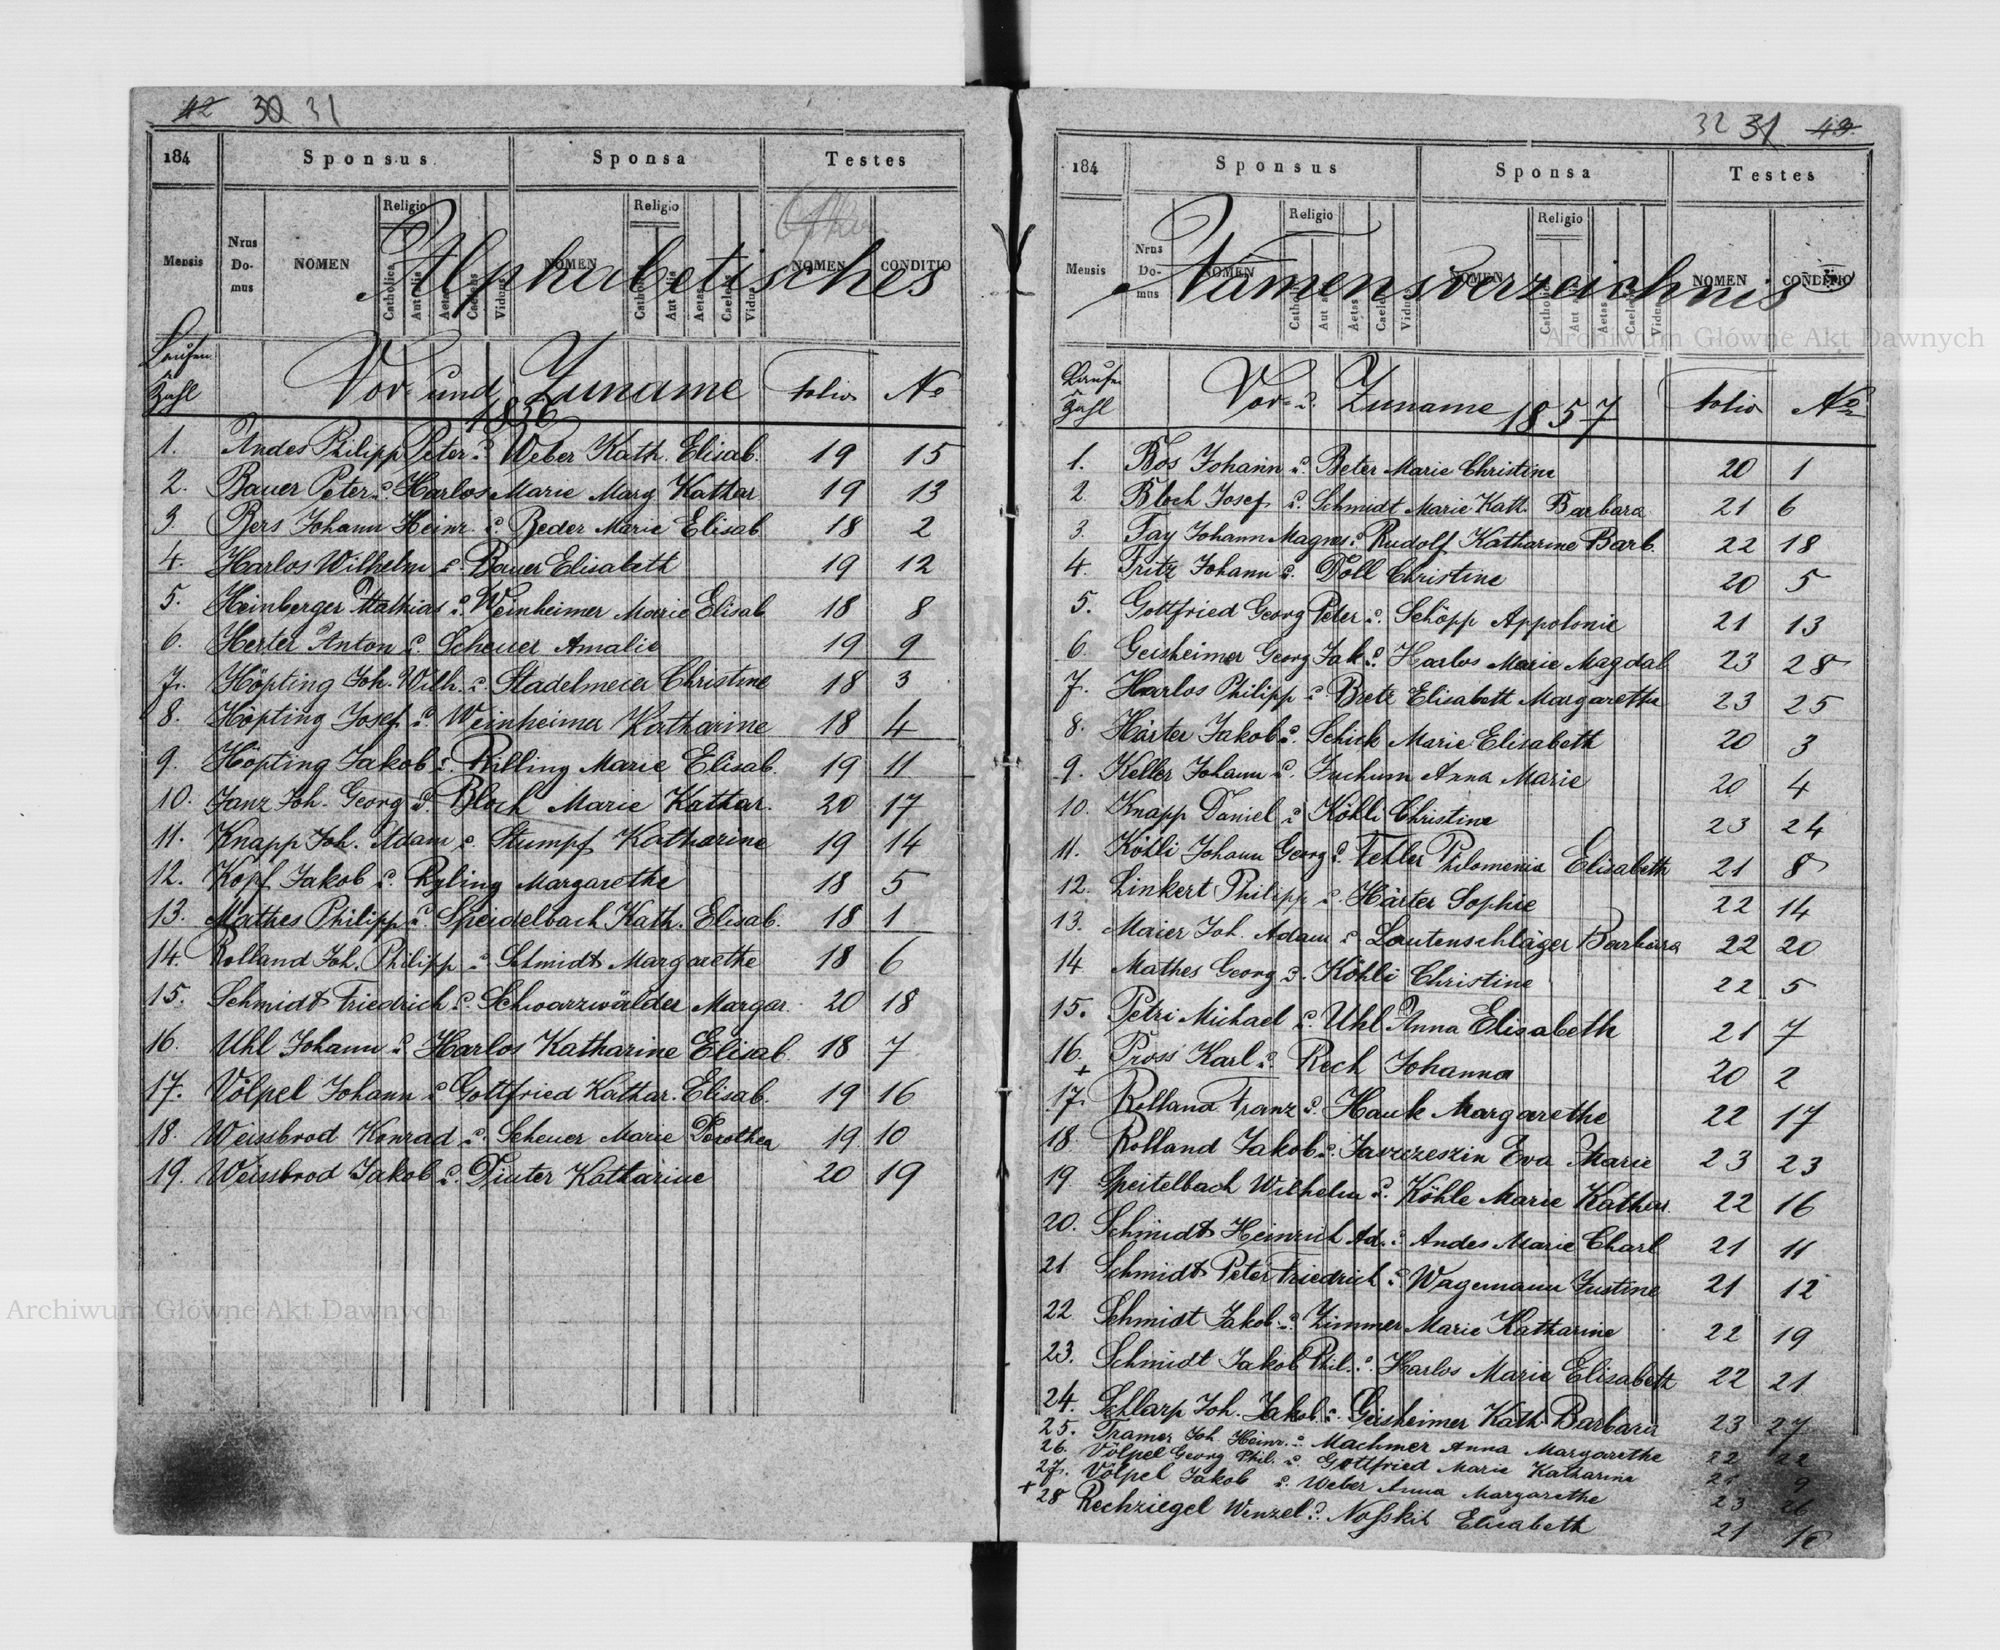 42 30 31
184 Sponsus Sponsa Testes
Mensis Nrus Domus NOMEN Religio Catholica Aut alia Aetas Caelebs Viduus NOMEN Religio Catholica Aut alia Aetas Caelebs Vidua NOMEN CONDITIO
Alphabetisches
Laufen. Zahl Vor- und Zuname folio No
1856
1. Andes Philipp Peter u. Weber Kath. Elisab. 19 15
2. Bauer Peter u. Harlos Marie Marg Kathar 19 13
3. Bers Johann Heinr. u. Reder Marie Elisab 18 2
4. Harlos Wilhelm u. Bauer Elisabeth 19 12
5. Heinberger Mathias u. Weinheimer Marie Elisab 18 8
6. Herter Anton u. Scheuer Amalie 19 9
7. Höpting Joh. Wilh. u. Stadelmeier Christine 18 3
8. Höpting Josef u. Weinheimer Katharine 18 4
9. Höpting Jakob u. Rilling Marie Elisab. 19 11
10. Janz Joh. Georg u. Bloch Marie Kathar. 20 17
11. Knapp Joh. Adam u. Stumpf Katharine 19 14
12. Kopf Jakob u. Ryling Margarethe 18 5
13. Mathes Philipp u. Speidelbach Kath. Elisab. 18 1
14. Rolland Joh. Philipp u. Schmidt Margarethe 18 6
15. Schmidt Friedrich u. Schwarzwälder Margar. 20 18
16. Uhl Johann u. Harlos Katharine Elisab. 18 7
17. Völpel Johann u. Gottfried Kathar. Elisab. 19 16
18. Weissbrod Konrad u. Scheuer Marie Dorothea 19 10
19. Weissbrod Jakob u. Dinter Katharine 20 19
32 31 43
184 Sponsus Sponsa Testes
Mensis Nrus Domus NOMEN Religio Catholica Aut alia Aetas Caelebs Viduus NOMEN Religio Catholica Aut alia Aetas Caelebs Vidua NOMEN CONDITIO
Namensverzeichnis
Laufe Zahl Vor- u. Zuname 1857 folio No
1. Bos Johann u. Beter Marie Christine 20 1
2. Bloch Josef u. Schmidt Marie Kath. Barbara 21 6
3. Fay Johann Magnus u. Rudolf Katharine Barb. 22 18
4. Fritz Johann u. Doll Christine 20 5
5. Gottfried Georg Peter u. Schöpp Appolonie 21 13
6. Geisheimer Georg Jak. u. Harlos Marie Magdal 23 28
7. Harlos Philipp u. Bretz Elisabeth Margaretha 23 25
8. Härter Jakob u. Schick Marie Elisabeth 20 3
9. Keller Johann u. Juchum Anna Marie 20 4
10. Knapp Daniel u. Köhli Christine 23 24
11. Köhli Johann Georg u. Feller Philomenia Elisabeth 21 8
12. Linkert Philipp u. Härter Sophie 22 14
13. Maier Joh. Adam u. Lautenschläger Barbara 22 20
14 Mathes Georg u. Köhli Christine 22 5
15. Petri Michael u. Uhl Anna Elisabeth 21 7
16. Pross Karl u. Rech Johanna 20 2
+ 17. Rolland Franz u. Hauk Margarethe 22 17
18. Rolland Jakob u. Javurzeszin Eva Marie 23 23
19. Speitelbach Wilhelm u. Köhle Marie Kathar. 22 16
20. Schmidt Heinrich Ad. u. Andes Marie Charl 21 11
21 Schmidt Peter Friedrich u. Wagemann Justine 21 12
22 Schmidt Jakob u. Zimmer Marie Katharine 22 19
23. Schmidt Jakob Phil. u. Harlos Marie Elisabeth 22 21
24. Schlarp Joh. Jakob u. Geisheimer Kath. Barbara 23 27
25. Tramer Joh. Heinr. u. Machmer Anna Margarethe 22 22
26. Völpel Georg Phil. u. Gottfried Marie Katharine 21 9
27. Völpel Jakob u. Weber Anna Margarethe 23 26
+ 28 Rechziegel Wenzel u. Nosskit Elisabeth 21 10
Archiwum Główne Akt Dawnych
Archiwum Główne Akt Dawnych